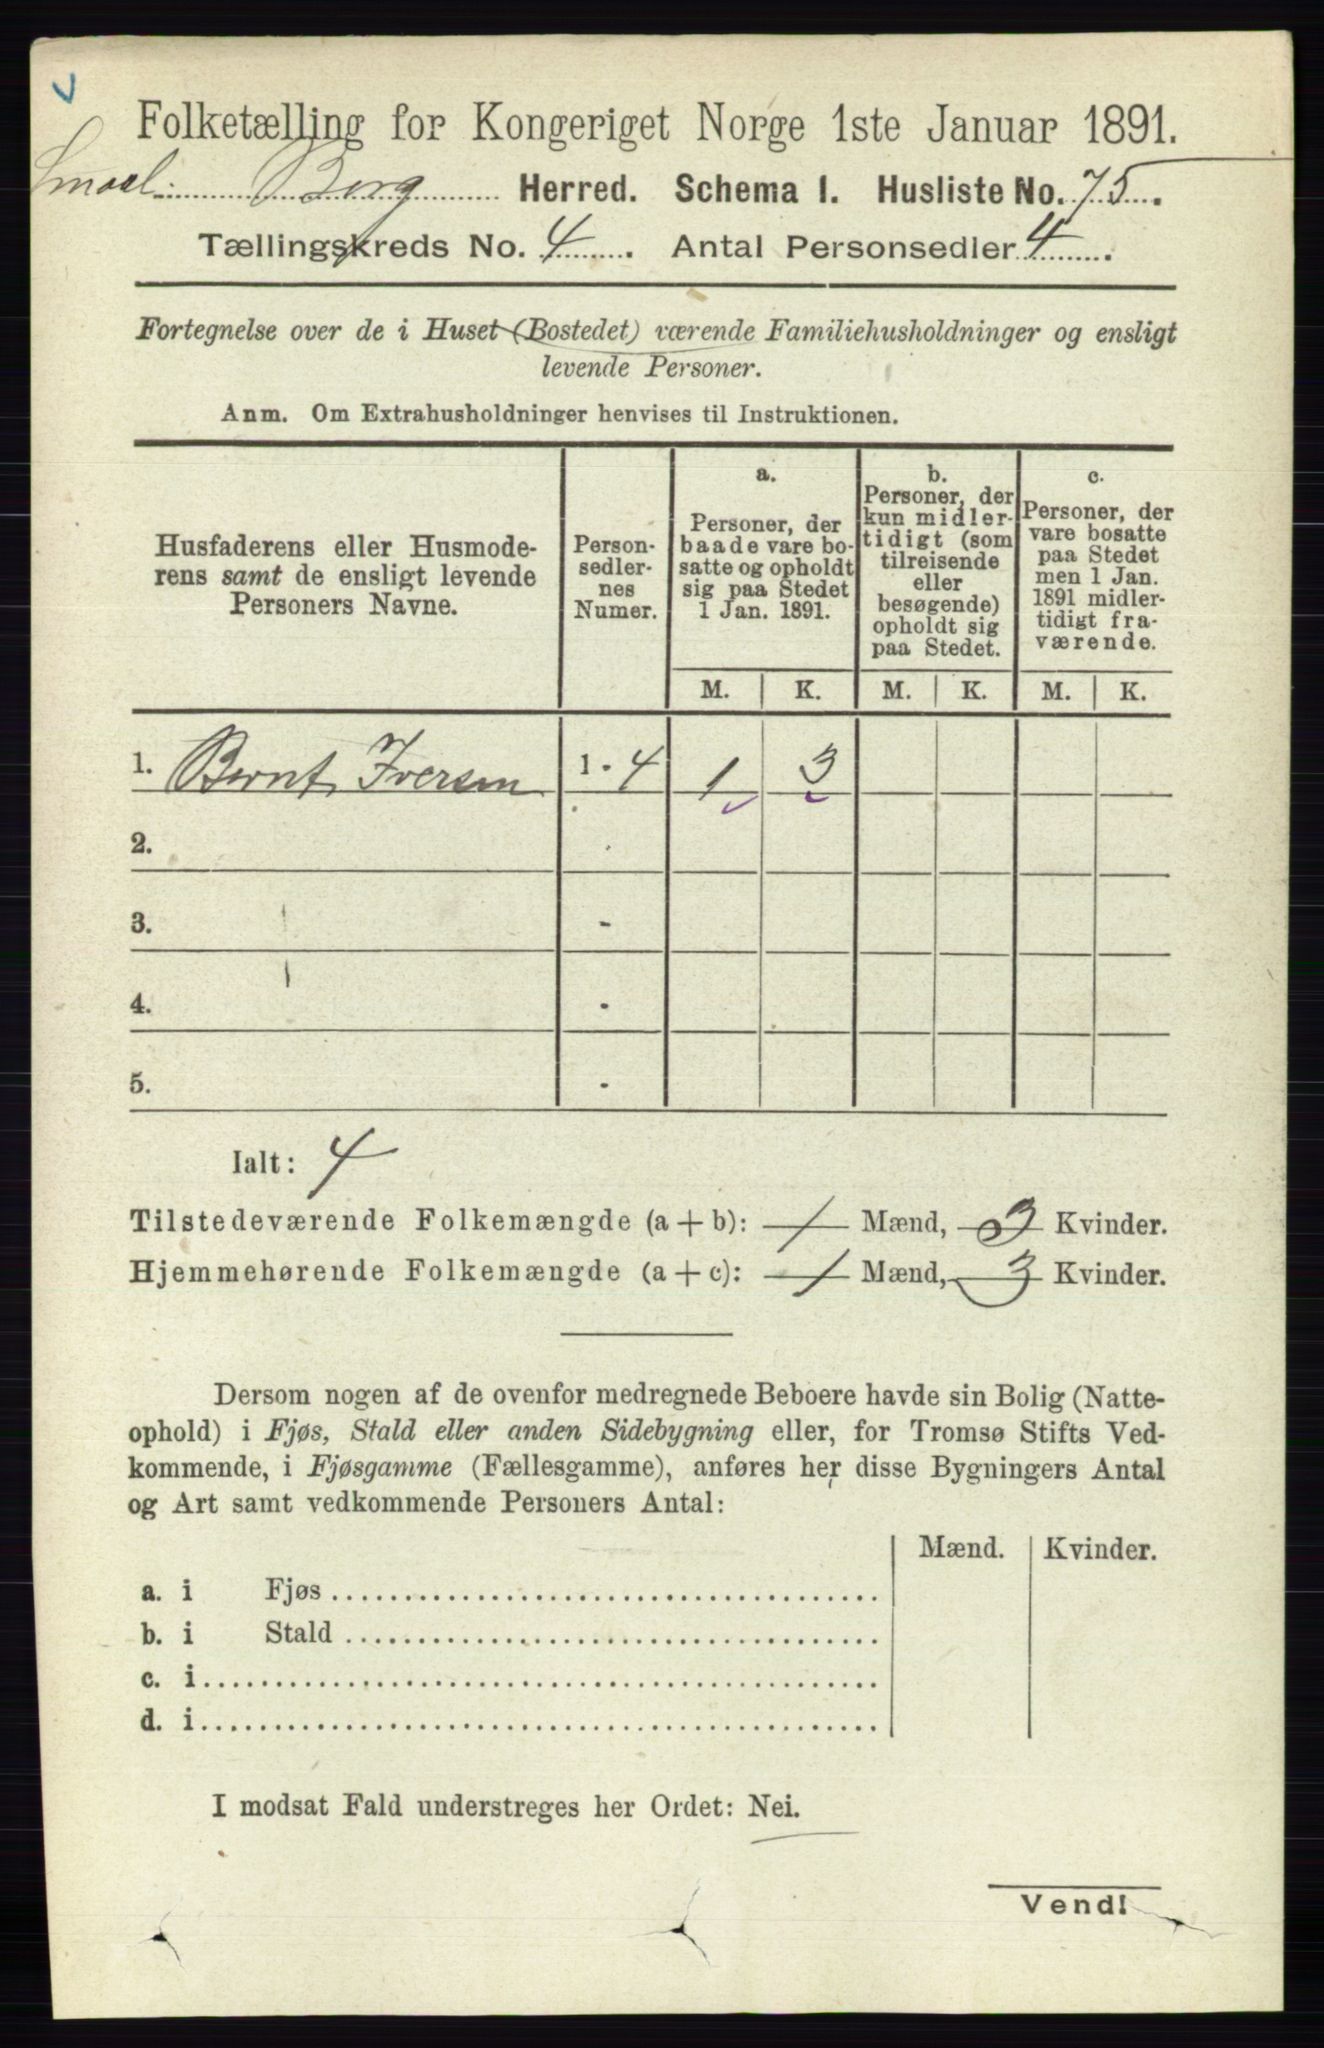 Folketælling for Kongeriget Norge 1ste Januar 1891.
Smaal. Berg Herred. Schema 1. Husliste No. 75.
Tællingskreds No. 4. Antal Personsedler 4.
Fortegnelse over de i Huset (Bostedet) værende Familiehusholdninger og ensligt
levende Personer.
Anm. Om Extrahusholdninger henvises til Instruktionen.
Husfaderens eller Husmode-
rens samt de ensligt levende
Personers Navne.
Person-
sedler-
nes
Numer.
a.
Personer, der
baade vare bo-
satte og opholdt
sig paa Stedet
1 Jan. 1891.
b.
Personer, der
kun midler-
tidigt (som
tilreisende
eller
besøgende)
opholdt sig
paa Stedet.
c.
Personer, der
vare bosatte
paa Stedet
men 1 Jan.
1891 midler-
tidigt fra-
værende.
M. K. M. K. M. K.
1. Bernt Iversen 1 - 4 1 3
2. -
3. -
4. -
5. -
Ialt: 4
Tilstedeværende Folkemængde (a + b): 1 Mænd, 3 Kvinder.
Hjemmehørende Folkemængde (a + c): 1 Mænd, 3 Kvinder.
Dersom nogen af de ovenfor medregnede Beboere havde sin Bolig (Natte-
ophold) i Fjøs, Stald eller anden Sidebygning eller, for Tromsø Stifts Ved-
kommende, i Fjøsgamme (Fællesgamme), anføres her disse Bygningers Antal
og Art samt vedkommende Personers Antal:
Mænd. Kvinder.
a. i Fjøs
b. i Stald
c. i
d. i
I modsat Fald understreges her Ordet: Nei.
Vend!